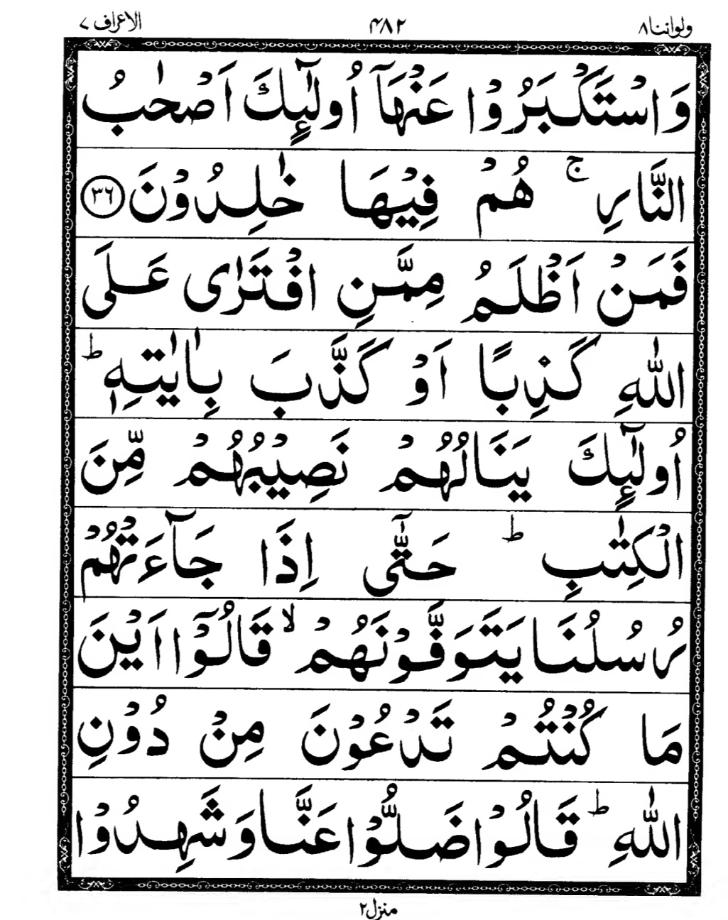 ولواننا ٨ ٤٨٢ الاعراف ٧
وَاسْتَكْبَرُوْا عَنْهَاۤ اُولٰٓئِكَ اَصْحٰبُ
النَّارِ ۚ هُمْ فِيْهَا خٰلِدُوْنَ ﴿۳۶﴾
فَمَنْ اَظْلَمُ مِمَّنِ افْتَرٰى عَلَى
اللّٰهِ كَذِبًا اَوْ كَذَّبَ بِاٰيٰتِهٖ ؕ
اُولٰٓئِكَ يَنَالُهُمْ نَصِيْبُهُمْ مِّنَ
الْكِتٰبِ ؕ حَتّٰۤى اِذَا جَآءَتْهُمْ
رُسُلُنَا يَتَوَفَّوْنَهُمْ ۙ قَالُوْۤا اَيْنَ
مَا كُنْتُمْ تَدْعُوْنَ مِنْ دُوْنِ
اللّٰهِ ؕ قَالُوْا ضَلُّوْا عَنَّا وَشَهِدُوْا
منزل ٢